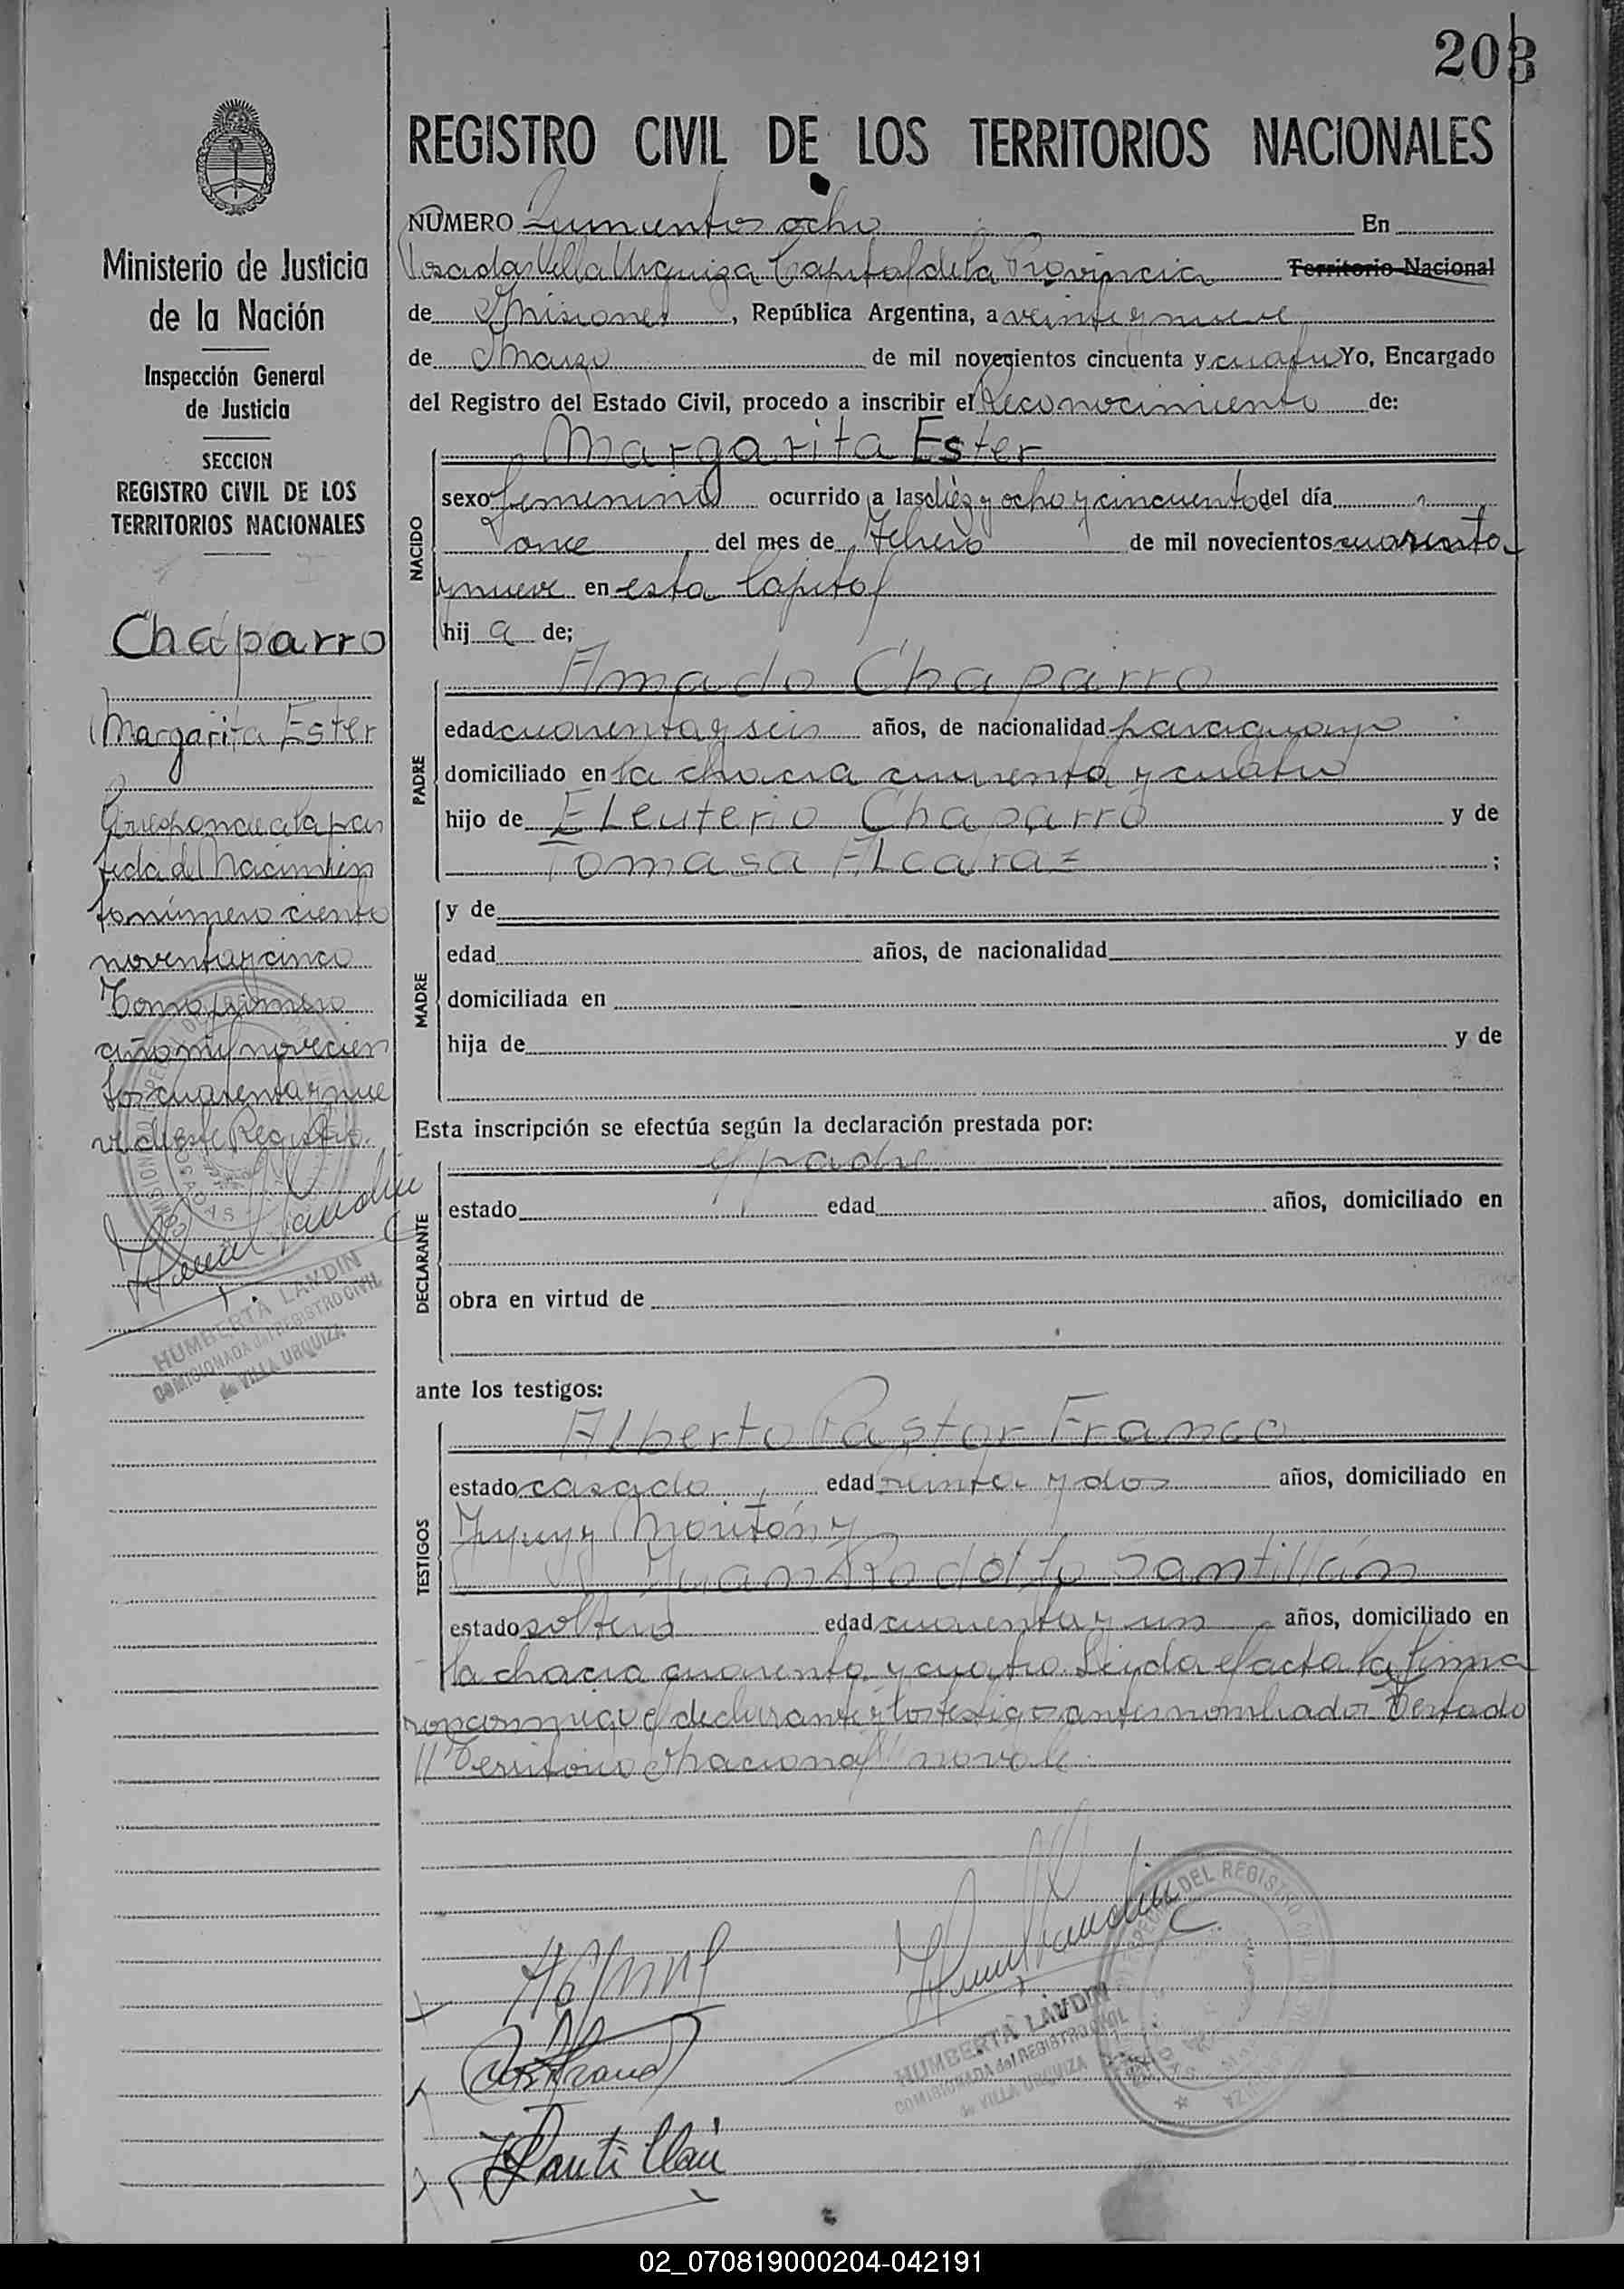 203
REGISTRO CIVIL DE LOS TERRITORIOS NACIONALES
Ministerio de Justicia
de la Nación
Inspección General
de Justicia
SECCION
REGISTRO CIVIL DE LOS
TERRITORIOS NACIONALES
Chaparro
Margarita Ester
Corresponde a la par
tida de Nacimien
to número ciento
noventa y cinco
Tomo primero
año mil novecien
tos cuarenta y nue
ve de este Registro.
HUMBERTA LANDIN
COMISIONADA del REGISTRO CIVIL
de VILLA URQUIZA
NUMERO Quinientos ocho En
Posadas Villa Urquiza Capital de la Provincia Territorio Nacional
de Misiones, República Argentina, a veinte y nueve
de Marzo de mil novecientos cincuenta y cuatro Yo, Encargado
del Registro del Estado Civil, procedo a inscribir el Reconocimiento de:
Margarita Ester
NACIDO
sexo femenino ocurrido a las diez y ocho y cincuenta del día
once del mes de Febrero de mil novecientos cuarenta
y nueve en esta Capital
hij a de;
Amado Chaparro
PADRE
edad cuarenta y seis años, de nacionalidad paraguayo
domiciliado en la chacra cuarenta y cuatro
hijo de Eleuterio Chaparro y de
Tomasa Alcaraz ;
MADRE
y de
edad años, de nacionalidad
domiciliada en
hija de y de
Esta inscripción se efectúa según la declaración prestada por:
el padre
DECLARANTE
estado edad años, domiciliado en
obra en virtud de
ante los testigos:
Alberto Pastor Franco
TESTIGOS
estado casado edad treinta y dos años, domiciliado en
Jujuy y Moritán y
Juan Rodolfo Santillán
estado soltero edad cuarenta y un años, domiciliado en
la chacra cuarenta y cuatro. Leida el acta la firma
ron conmigo el declarante y los testigos antes nombrados Testado
"Territorio Nacional" no vale
HUMBERTA LANDIN
COMISIONADA del REGISTRO CIVIL
de VILLA URQUIZA
DEL REGISTRO
Santillán
02_070819000204-042191